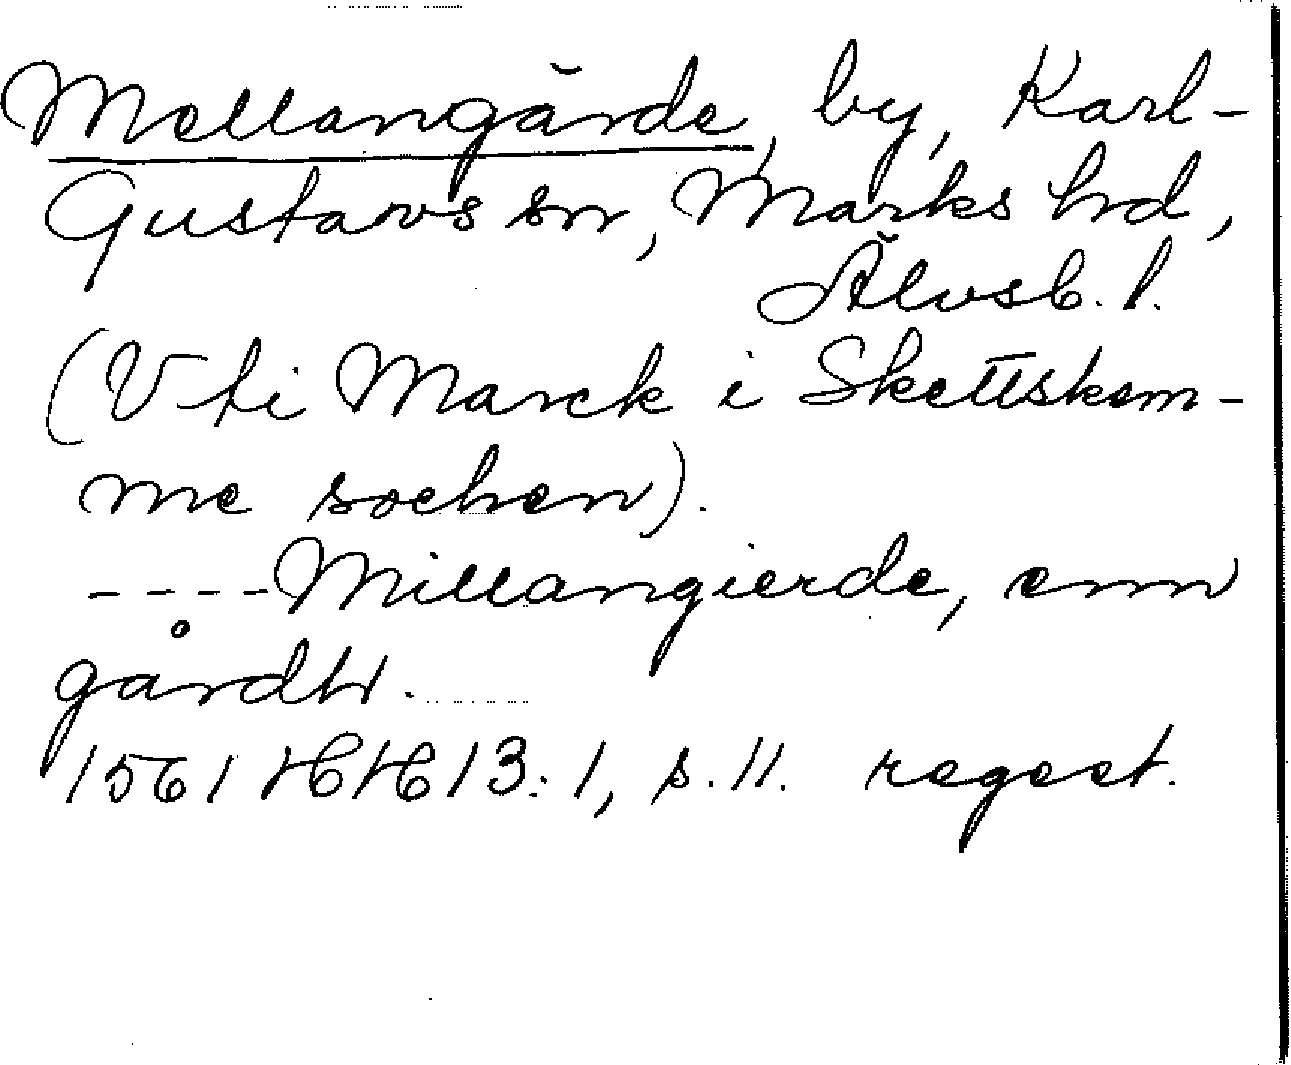 Mellangärde, by, Karl-
Gustavs sn, Marks hd,
Älvsb. l.
(Vti Marck i Skettskem-
me sochen).
----Millangierde, enn
gårdh.
1561 HH 13:1, s. 11. regest.